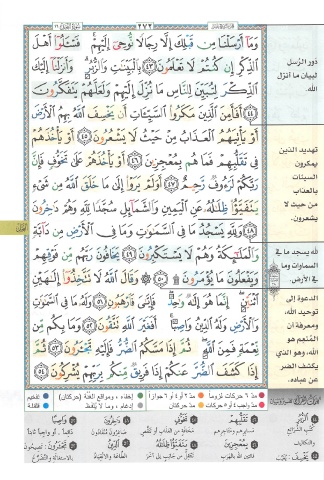 سورة النحل ١٦
٢٧٢
وَمَآ أَرْسَلْنَا مِن قَبْلِكَ إِلَّا رِجَالًا نُّوحِىٓ إِلَيْهِمْ ۖ فَسْـَٔلُوٓا۟ أَهْلَ
ٱلذِّكْرِ إِن كُنتُمْ لَا تَعْلَمُونَ ٤٣ بِٱلْبَيِّنَـٰتِ وَٱلزُّبُرِ ۗ وَأَنزَلْنَآ إِلَيْكَ
ٱلذِّكْرَ لِتُبَيِّنَ لِلنَّاسِ مَا نُزِّلَ إِلَيْهِمْ وَلَعَلَّهُمْ يَتَفَكَّرُونَ
٤٤ أَفَأَمِنَ ٱلَّذِينَ مَكَرُوا۟ ٱلسَّيِّـَٔاتِ أَن يَخْسِفَ ٱللَّهُ بِهِمُ ٱلْأَرْضَ
أَوْ يَأْتِيَهُمُ ٱلْعَذَابُ مِنْ حَيْثُ لَا يَشْعُرُونَ ٤٥ أَوْ يَأْخُذَهُمْ
فِى تَقَلُّبِهِمْ فَمَا هُم بِمُعْجِزِينَ ٤٦ أَوْ يَأْخُذَهُمْ عَلَىٰ تَخَوُّفٍ فَإِنَّ
رَبَّكُمْ لَرَءُوفٌ رَّحِيمٌ ٤٧ أَوَلَمْ يَرَوْا۟ إِلَىٰ مَا خَلَقَ ٱللَّهُ مِن شَىْءٍ
يَتَفَيَّؤُا۟ ظِلَـٰلُهُۥ عَنِ ٱلْيَمِينِ وَٱلشَّمَآئِلِ سُجَّدًا لِّلَّهِ وَهُمْ دَٰخِرُونَ
٤٨ وَلِلَّهِ يَسْجُدُ مَا فِى ٱلسَّمَـٰوَٰتِ وَمَا فِى ٱلْأَرْضِ مِن دَآبَّةٍ
وَٱلْمَلَـٰٓئِكَةُ وَهُمْ لَا يَسْتَكْبِرُونَ ٤٩ يَخَافُونَ رَبَّهُم مِّن فَوْقِهِمْ
وَيَفْعَلُونَ مَا يُؤْمَرُونَ ۩ ٥٠ وَقَالَ ٱللَّهُ لَا تَتَّخِذُوٓا۟ إِلَـٰهَيْنِ
ٱثْنَيْنِ ۖ إِنَّمَا هُوَ إِلَـٰهٌ وَٰحِدٌ ۖ فَإِيَّـٰىَ فَٱرْهَبُونِ ٥١ وَلَهُۥ مَا فِى ٱلسَّمَـٰوَٰتِ
وَٱلْأَرْضِ وَلَهُ ٱلدِّينُ وَاصِبًا ۚ أَفَغَيْرَ ٱللَّهِ تَتَّقُونَ ٥٢ وَمَا بِكُم مِّن
نِّعْمَةٍ فَمِنَ ٱللَّهِ ۖ ثُمَّ إِذَا مَسَّكُمُ ٱلضُّرُّ فَإِلَيْهِ تَجْـَٔرُونَ ٥٣ ثُمَّ
إِذَا كَشَفَ ٱلضُّرَّ عَنكُمْ إِذَا فَرِيقٌ مِّنكُم بِرَبِّهِمْ يُشْرِكُونَ ٥٤
دور الرسل
لبيان ما أنزل
الله.
تهديد الذين
يمكرون
السيئات
بالعذاب
من حيث لا
يشعرون.
لله يسجد ما في
السماوات وما
في الأرض.
الدعوة إلى
توحيد الله،
ومعرفة أن
المنعم هو
الله، وهو الذي
يكشف الضر
عن عباده.
مد ٦ حركات لزوما
مد ٢ أو ٤ أو ٦ جوازا
مد واجب ٤ أو ٥ حركات
مد حركتان
إخفاء، ومواقع الغنة (حركتان)
إدغام، وما لا يلفظ
تفخيم
قلقلة